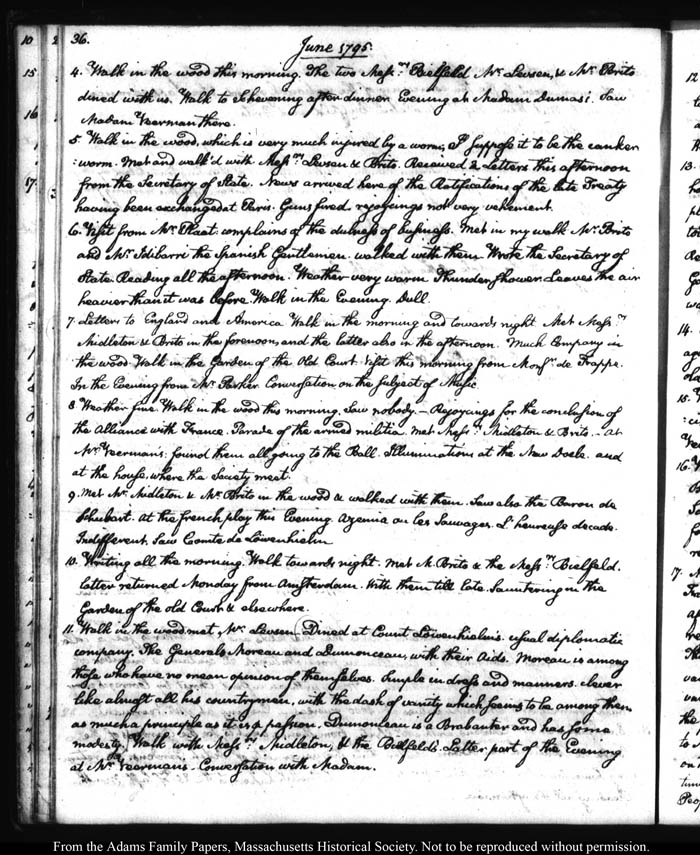 36.
June 1795.
4. Walk in the wood this morning. The two Messrs. Bielfeld Mr. Levsen, & Mr. Brito
dined with us. Walk to Schevening after dinner Evening at Madam Dumas's. Saw
Madam Veerman there.
5. Walk in the wood, which is very much injured by a worm, I suppose it to be the canker
:worm. Met and walk'd with Messrs. Levsen & Brito. Received 2 Letters this afternoon
from the Secretary of State. News arrived here of the Ratifications of the late Treaty
having been exchanged at Paris. Guns fired, rejoycings not very vehement.
6. Visit from Mr. Plaat. complains of the dulness of business. Met in my walk Mr. Brito
and Mr. Idibarri the Spanish Gentlemen. walked with them. Wrote the Secretary of
State. Reading all the afternoon. Weather very warm Thunder shower. Leaves the air
heavier than it was before. Walk in the Evening. Dull.
7. Letters to England and America Walk in the morning and towards night Met Messrs.
Midleton & Brito in the forenoon, and the latter also in the afternoon. Much Company in
the wood. Walk in the Garden of the Old Court. Visit this morning from Monsr. de Frappe.
In the Evening from Mr. Parker. Conversation on the subject of Music
8. Weather fine. Walk in the wood this morning. Saw nobody. — Rejoycings for the conclusion of
the Alliance with France. Parade of the armed militia. Met Messrs. Midleton & Brito. — At
Mr. Veermans; found them all going to the Ball. Illuminations at the New Doele. and
at the house, where the Society meet.
9. Met Mr. Midleton & Mr. Brito in the wood & walked with them. Saw also the Baron de
Schubart. At the french play this Evening. Azemia ou les Sauvages. L'heureuse decade.
Indifferent. Saw Comte de Löwenhielm
10. Writing all the morning. Walk towards night. Met M. Brito & the Messrs. Bielfeld.
latter returned Monday from Amsterdam. With them till late. Sauntering in the
Garden of the old Court & elsewhere.
11. Walk in the wood. met Mr. Levsen. Dined at Count Löwenhielm's. usual diplomatic
company. The Generals Moreau and Dumonceau, with their Aids. Moreau is among
those who have no mean opinion of themselves. Simple in dress and manners. clever
like almost all his countrymen, with the dash of vanity which seems to be among them
as much a principle as it is a passion. Dumonceau is a Brabanter and has some
modesty. Walk with Messrs. Midleton, & the Bielfelds. Latter part of the Evening
at Mr. Veerman's. Conversation with Madam.
From the Adams Family Papers, Massachusetts Historical Society. Not to be reproduced without permission.